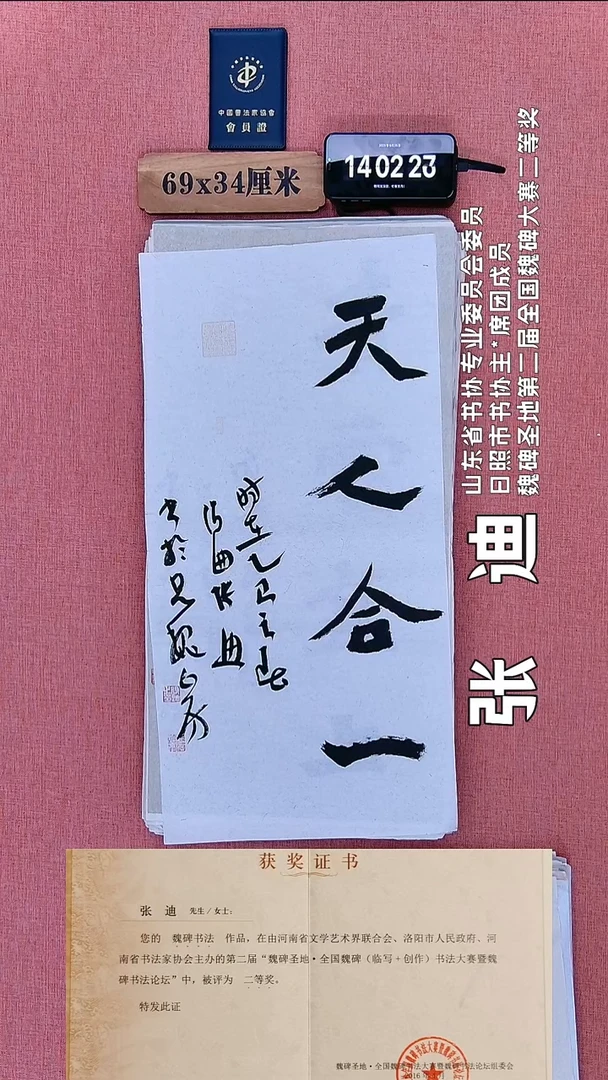 中國書法家協會
會員證
69x34厘米
14 02 23
山东省书协专业委员会委员
日照市书协主*席团成员
魏碑圣地第二届全国魏碑大赛二等奖
张 迪
天人合一
时在乙巳之春
书於見魏山房
获奖证书
张 迪 先生/女士：
您的 魏碑书法 作品，在由河南省文学艺术界联合会、洛阳市人民政府、河
南省书法家协会主办的第二届“魏碑圣地·全国魏碑（临写+创作）书法大赛暨魏
碑书法论坛”中，被评为 二等奖。
特发此证
魏碑圣地·全国魏碑书法大赛暨魏碑书法论坛组委会